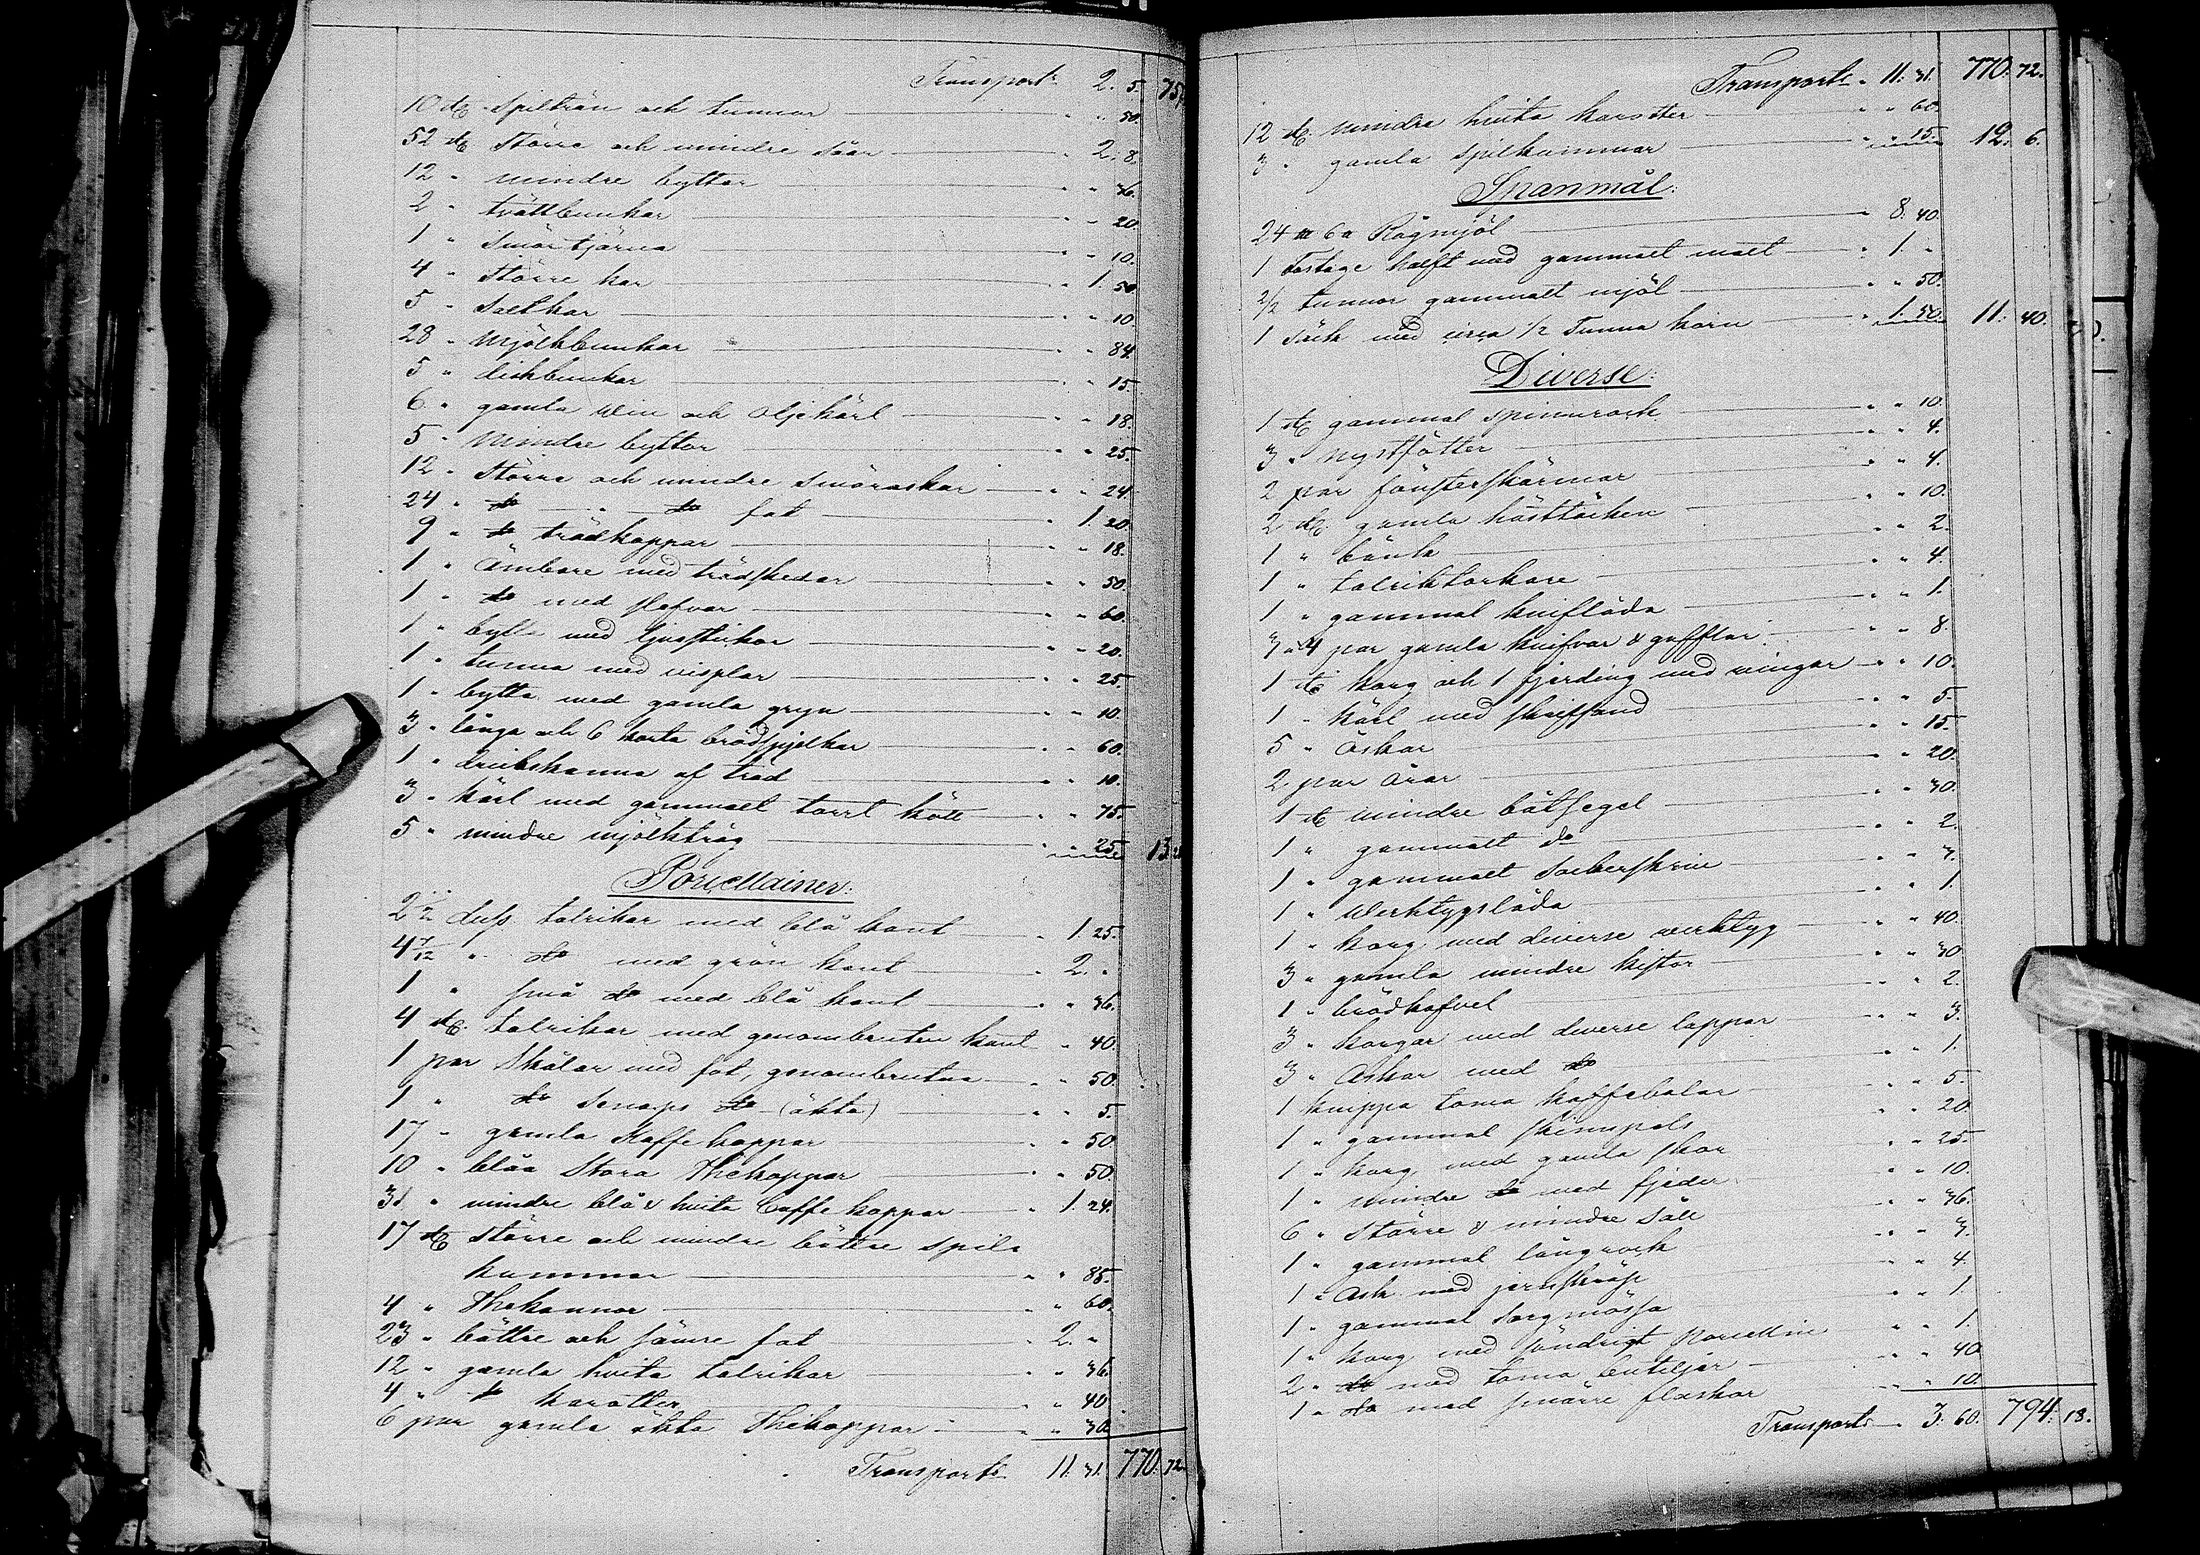 Transport 2. 5. 757
10 st. spilträn och tunnor " " 50.
52 st större och mindre såar " 2. 8.
12 " mindre byttor " " 36.
2 " tvättbunkar " " 20.
1 " smör tjärna " " 10.
4 " större kar " 1. 50.
5 " salt kar " " 10.
28 " mjölkbunkar " " 84.
5 " diskbunkar " " 15.
6 " gamla vin och oljekärl " " 18.
5 " mindre byttor " " 25.
12 " större och mindre smöraskar " " 24.
24 " do " do fat " 1. 20.
9 " do trädkoppar " " 18.
1 " Ämbare med trädskedar " " 50.
1 " do med slefvar " " 60.
1 " bytta med ljusstickor " " 20.
1 " tunna med visplar " " 25.
1 " bytta med gamla gryn " " 10.
3 " långa och 6 korta brödspjelkar " " 60.
1 " drickskanna af träd " " 10.
3 " kärl med gammalt torrt kött " " 75.
5 " mindre mjölktråg " " 25. 13.
Porcellainer:
2 1/2 duss. talrikar med blå kant " 1. 25.
4 7/12 " do med grön kant " 2. "
1 " små do med blå kant " " 36.
4 st. talrikar med genombruten kant " 40.
1 par Skålar med fat, genombrutna " " 50.
1 " do senaps do (äkta) " " 5.
17 " gamla Kaffe koppar " " 50.
10 " blåa stora Thekoppar " " 50.
31 " mindre blå & hvita Caffe koppar " 1. 24.
17 st större och mindre bättre spil=
kummar " " 85.
4 " Thekannor " " 60.
23 " bättre och sämre fat " 2. "
12 " gamla hvita talrikar " " 36.
4 " do karotter " " 40.
6 par gamla äkta Thekoppar " " 30.
Transport 11. 31. 770. 72.
Transport " 11. 31. 770. 72.
12 st. mindre hvita karotter " " 60.
3 " gamla spilkummar " " 15. 12. 6.
Spanmål:
24 Rågmjöl " 8. 40.
1 Fastage halft med gammalt malt " 1. "
2/2 tunnor gammalt mjöl " " 50.
1 Säck med circa 1/2 Tunna korn " 1. 50. 11. 40.
Diverse:
1 st gammal spinnrock " " 10.
3 " nystfötter " " 4.
2 par fönsterskärmar " " 4.
2 st. gamla hästtäcken " " 10.
1 " bänk " " 2.
1 " talriktorkare " " 4.
1 " gammal kniflåda " " 1.
3 a 4 par gamla knifvar & gafflar " " 8.
1 st korg och 1 fjerding med vingar " " 10.
1 " kärl med skrifsand " " 5.
5 " Askar " " 15.
2 par åror " " 20.
1 st mindre båtsegel " " 30.
1 " gammalt do " " 2.
1 " gammalt sockerskrin " " 3.
1 " Werktygslåda " " 1.
1 " korg med diverse verktyg " " 40.
3 " gamla mindre kistor " " 30.
1 " brödkafvel " " 2.
3 " korgar med diverse lappar " " 3.
3 " Askar med do " " 1.
1 knippa toma kaffebalar " " 5.
1 " gammal skinnpels " " 20.
1 " korg med gamla skor " " 25.
1 " mindre do med fjeder " " 10.
6 " större & mindre såll " " 36.
1 " gammal långrock " " 3.
1 " Ask med jernskräp " " 4.
1 " gammal sorgmössa " " 1.
1 " korg med söndrigt Porcellin " " 1.
2 " do med toma buteljer " " 40.
1 " do med smärre flaskor " " 10.
Transport 3. 60. 794. 18.